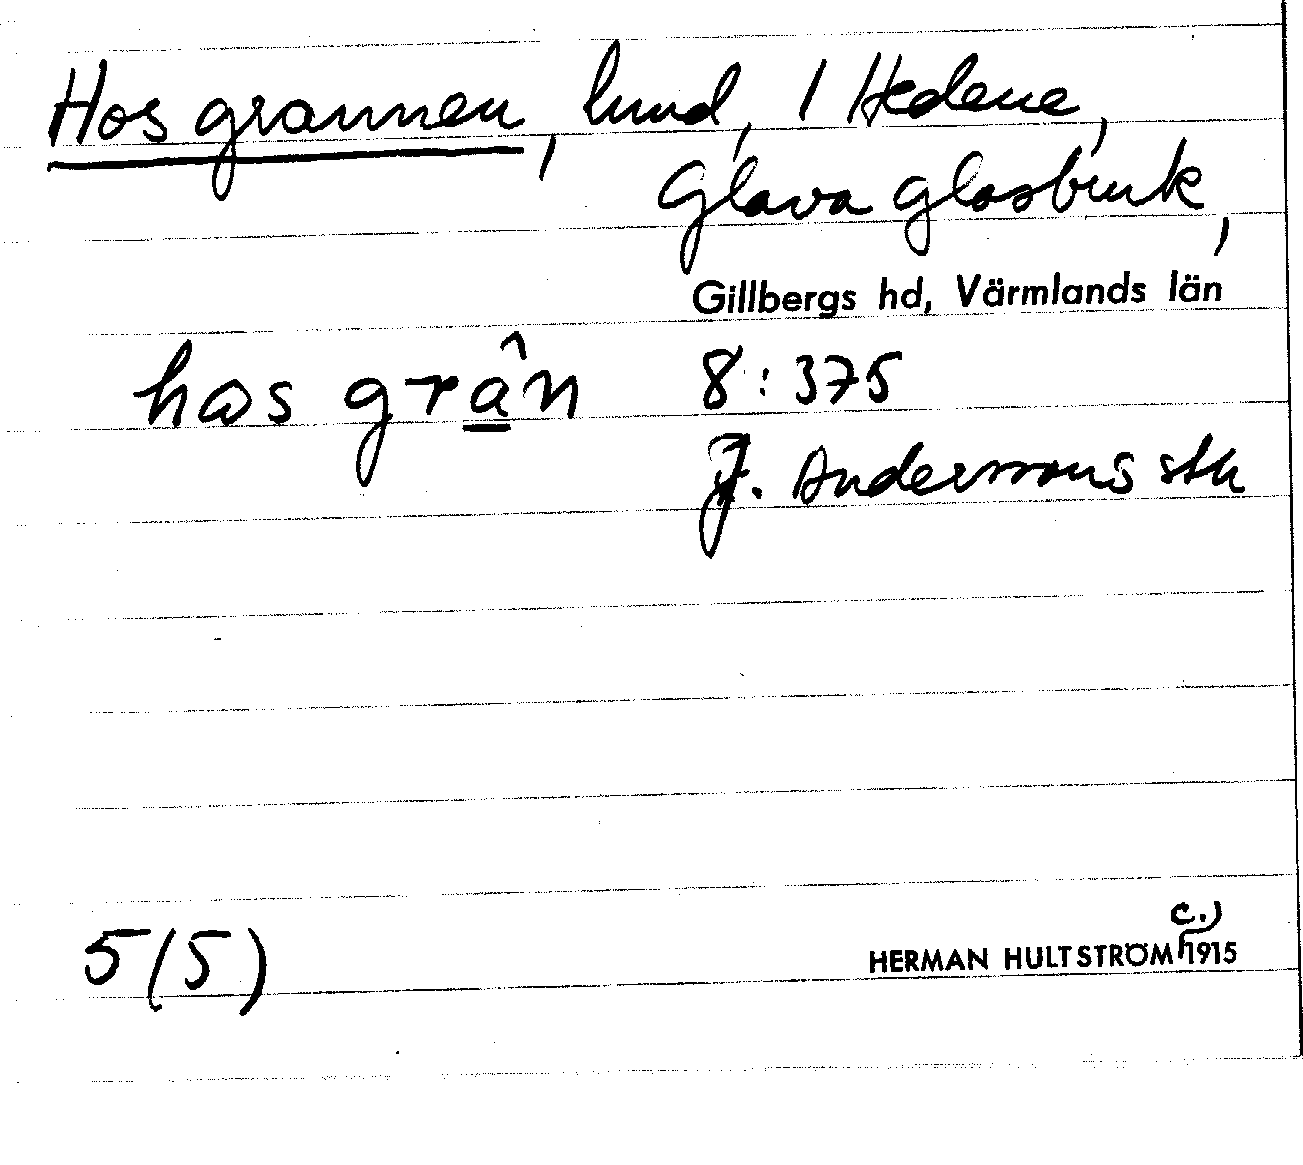 Hos grannen, lund, 1 Hedene,
Glava glasbruk,
Gillbergs hd, Värmlands län
has grân 8:375
J. Anderssons stn
5(5)
c.)
HERMAN HULTSTRÖM 1915